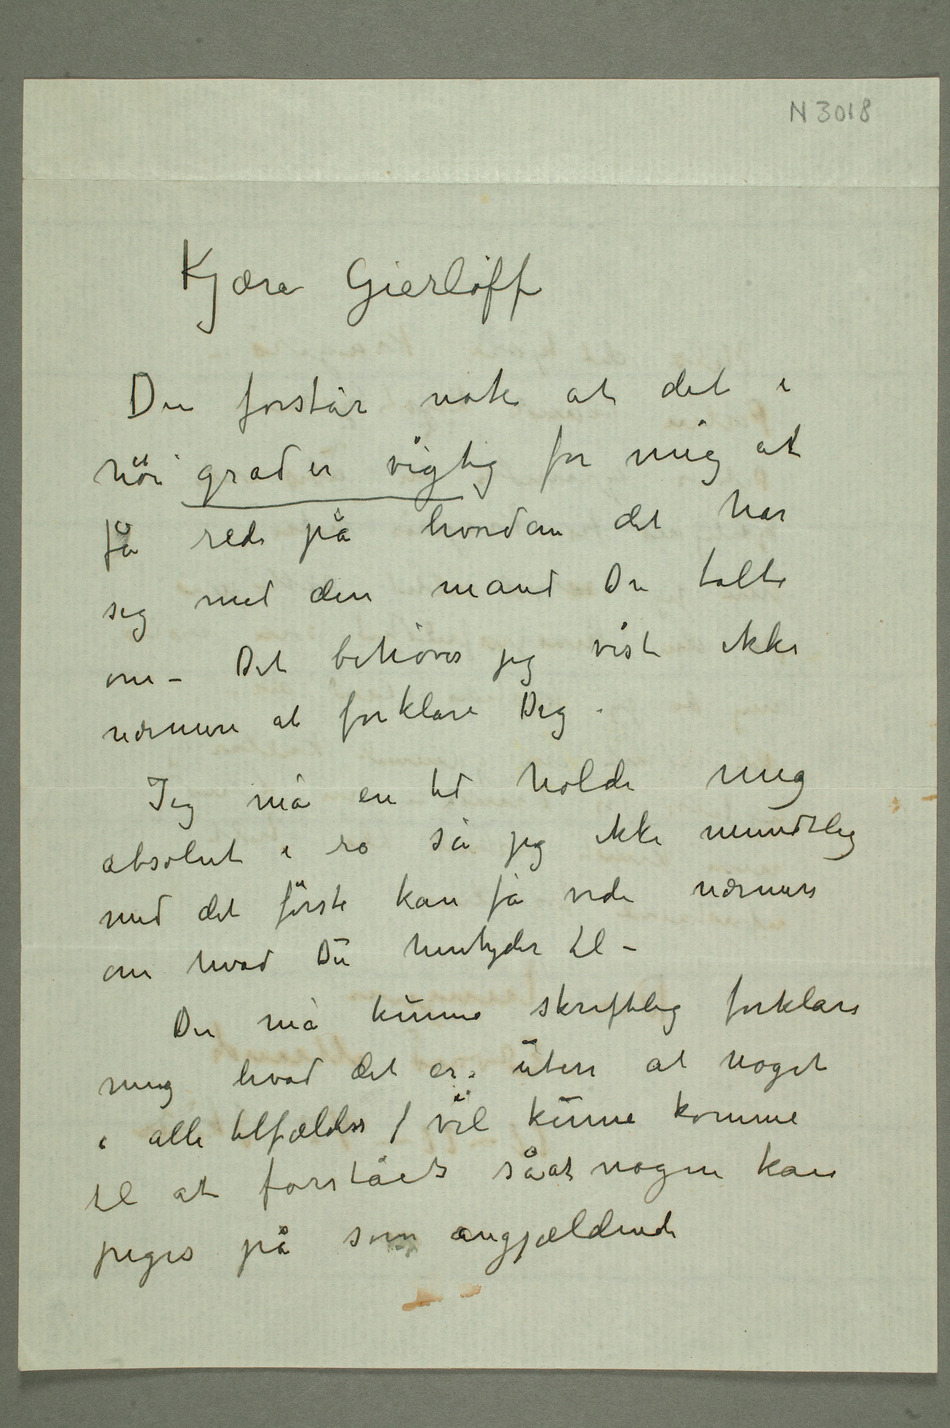 N 3018
Kjære Gierløff
Du forstår nok at det i
höi grad er vigtig for mig at
få rede på hvordan det har
sig med den mand Du talte
om – Det behøver jeg visst ikke
nærmere at forklare Dig .
Jeg må en tid holde mig
absolut i ro så jeg ikke mundtlig
med det förste kan få vide nærmere
om hvad Du hentyder til –
Du må kunne skriftlig forklare
mig hvad det er . uten at noget
i alle tilfælde / vil kunne komme
til at forståes såat nogen kan
peges på som angjældende